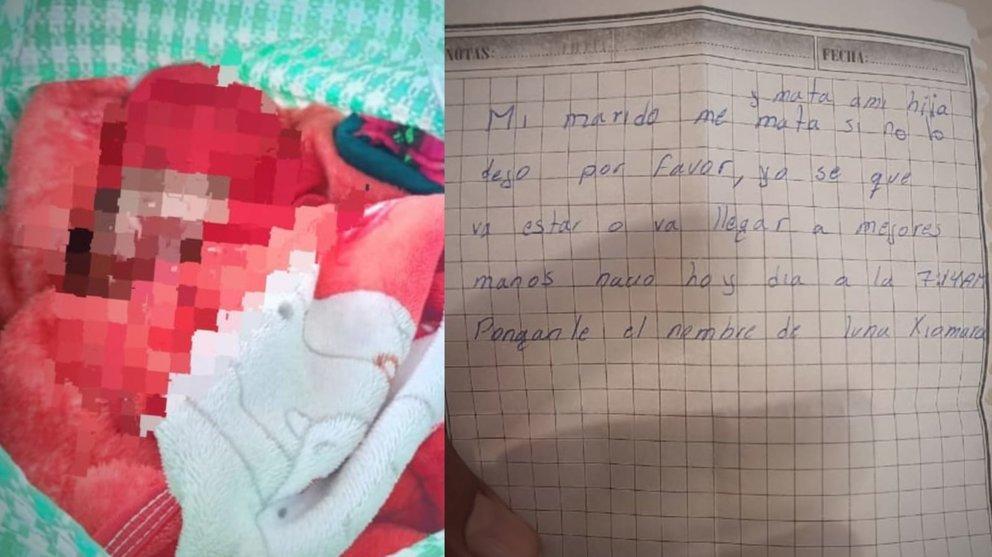 NOTAS: FECHA:
y mata ami hija
Mi marido me mata si no lo
dejo por favor, yo se que
va estar o va llegar a mejores
manos nacio hoy dia a la 7:14AM
Ponganle el nombre de luna Xiamara